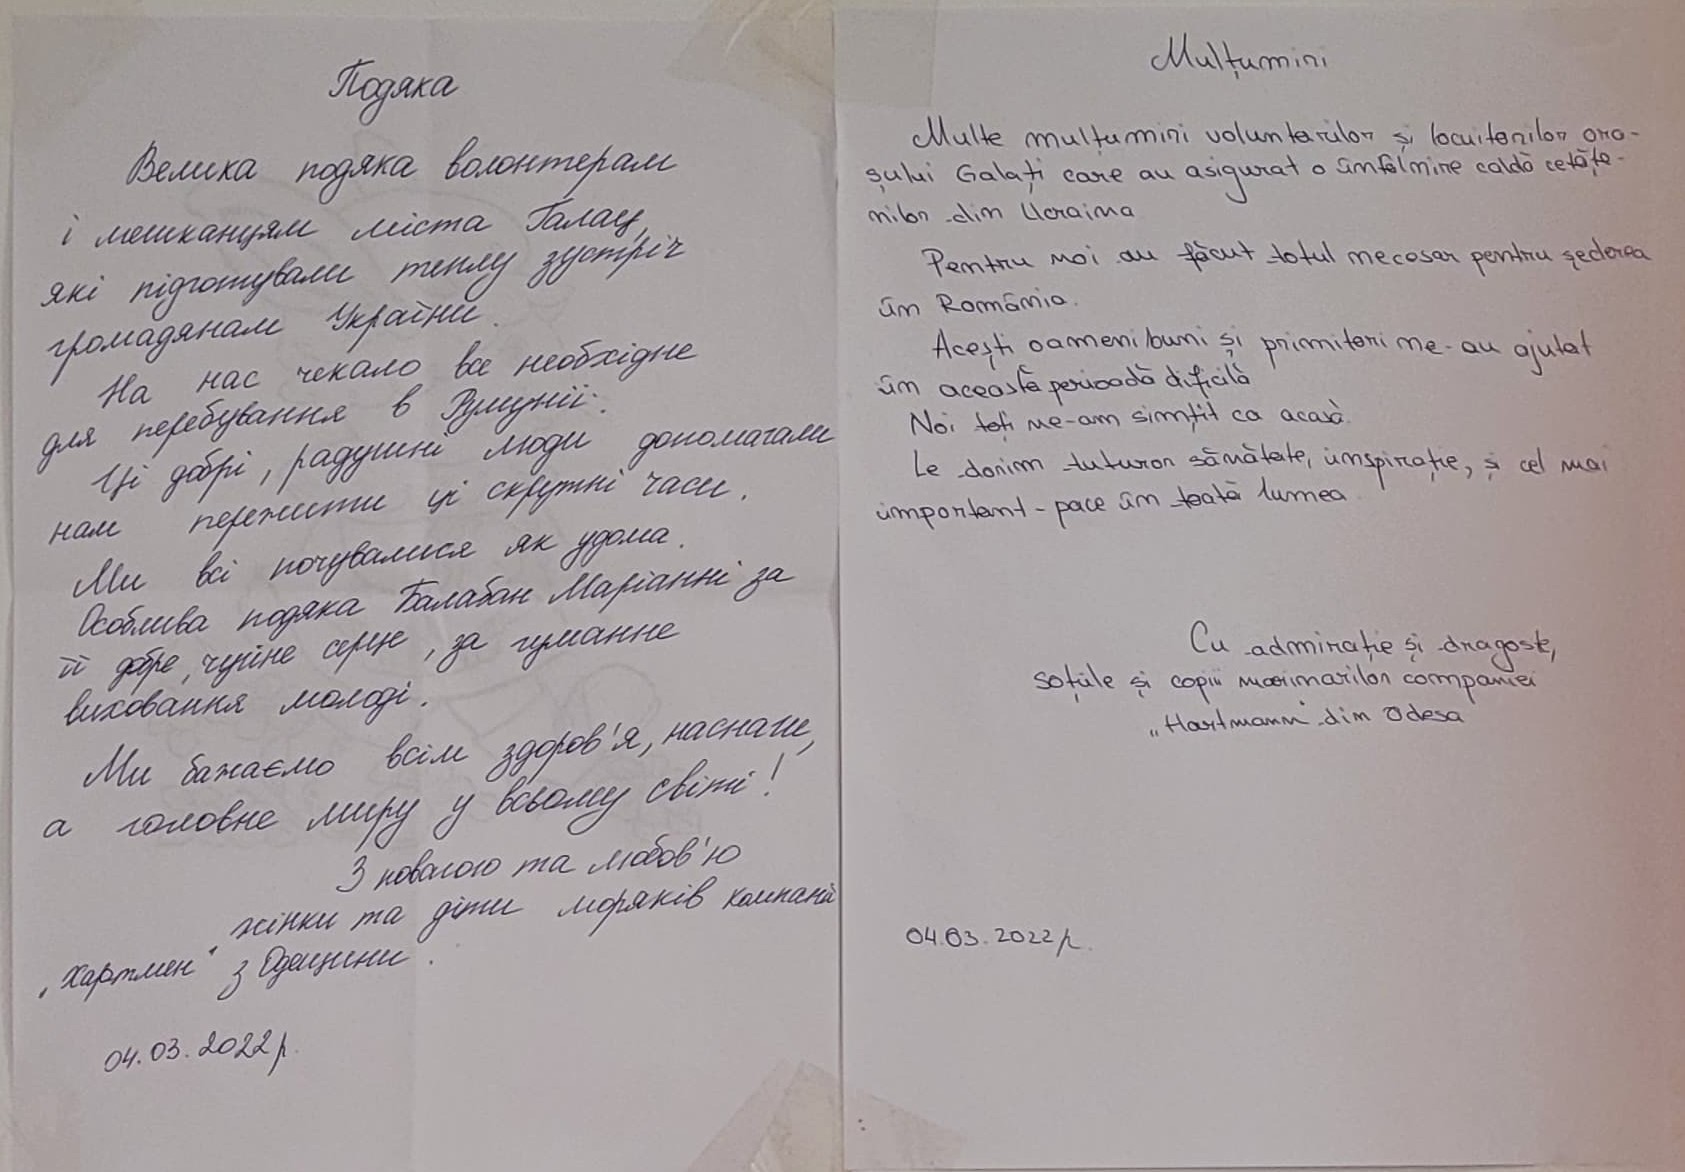 Подяка
Велика подяка волонтерам
і мешканцям міста Галац,
які підготували теплу зустріч
громадянам України.
На нас чекало все необхідне
для перебування в Румунії.
Ці добрі, радушні люди допомагали
нам пережити ці скрутні часи.
Ми всі почувалися як удома.
Особлива подяка Балабан Маріанні за
її добре, чуйне серце, за гуманне
виховання молоді.
Ми бажаємо всім здоров'я, наснаги,
а головне миру у всьому світі!
З повагою та любов'ю
жінки та діти моряків компанії
„Хартмен" з Одещини.
04.03.2022р.
Mulțumiri
Multe mulțumiri voluntarilor și locuitorilor ora-
șului Galați care au asigurat o întâlnire caldă cetățe-
nilor din Ucraina
Pentru noi au făcut totul necesar pentru șederea
în România.
Acești oameni buni și primitori ne-au ajutat
în această perioadă dificilă
Noi toți ne-am simțit ca acasă.
Le dorim tuturor sănătate, inspirație, și cel mai
important - pace în toată lumea.
Cu admirație și dragoste,
soțiile și copiii marinarilor companiei
„Hartmann" din Odesa
04.03.2022р.